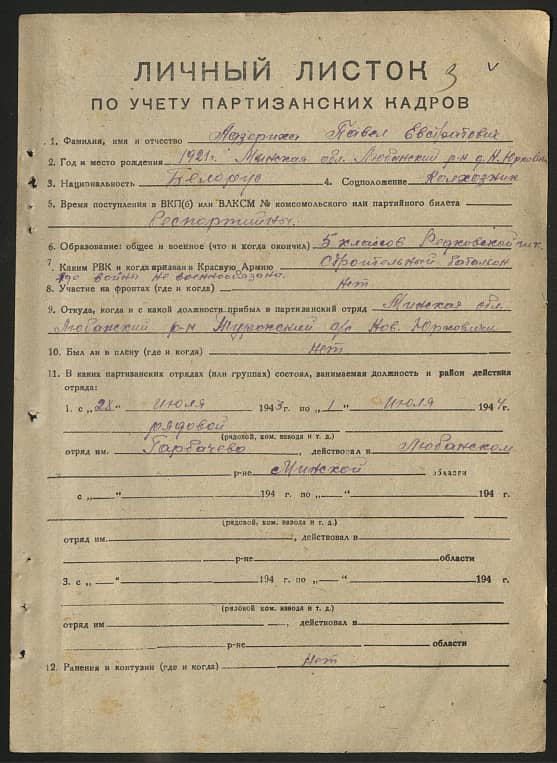 ЛИЧНЫЙ ЛИСТОК 3 v
ПО УЧЕТУ ПАРТИЗАНСКИХ КАДРОВ
1. Фамилия, имя и отчество Лазориха Павел Евстратович
2. Год и место рождения 1921г. Минская обл. Любанский р-н д. Н. Юркович
3. Национальность Белорус 4. Соцположение Колхозник
5. Время поступления в ВКП(б) или ВЛКСМ № комсомольского или партийного билета
Беспортийны
6. Образование: общее и военное (что и когда окончил) 5 классов
7. Каким РВК и когда призван в Красную Армию Строительный батальон
До войны не военнообязана.
8. Участие на фронтах (где и когда) нет
9. Откуда, когда и с какой должности прибыл в партизанский отряд Минская обл.
Любанский р-н с/с Нов. Юрковичи
10. Был ли в плену (где и когда) нет
11. В каких партизанских отрядах (или группах) состоял, занимаемая должность и район действия
отряда:
1. с „28“ июля 1943г. по „1“ июля 1944г.
рядовой
(рядовой, ком. взвода и т. д.)
отряд им. Гарбачёва, действовал в Любанском
р-не Минской области
с „—“ 194 г. по „—“ 194 г.
(рядовой, ком. взвода и т. д.)
отряд им. , действовал в
р-не области
3. с „—“ 194 г. по „—“ 194 г.
(рядовой, ком. взвода и т. д.)
отряд им , действовал в
р-не области
12. Ранения и контузии (где и когда) Нет